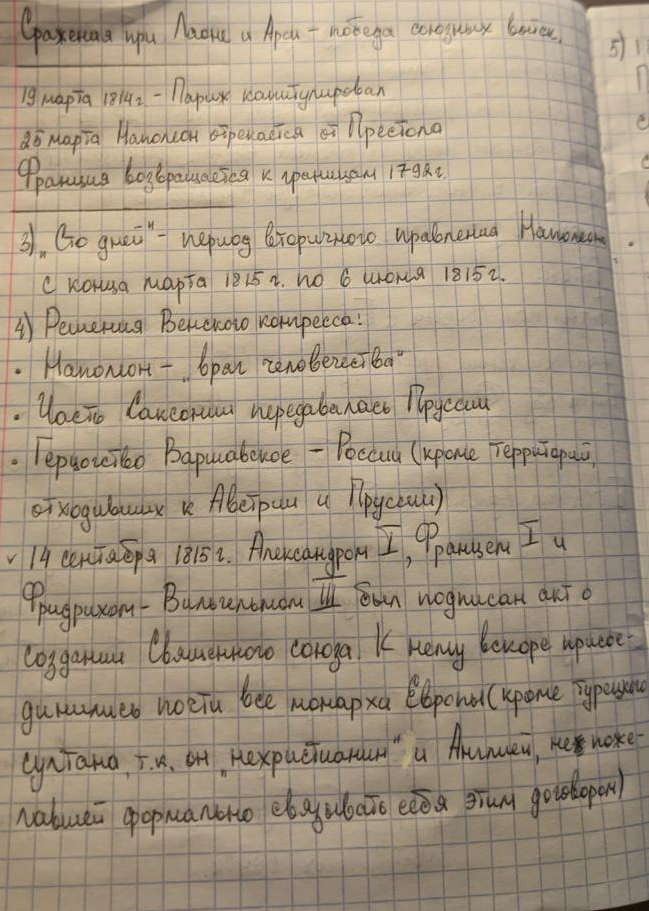 Сраженая при Лаоне и Арси – победа союзных войск.
19 марта 1814г. – Париж капитулировал
25 марта Наполеон отрекается от Престола
Франция возвращается к границам 1792г.
3) „Сто дней" – период вторичного правления Наполеона
с конца марта 1815 г. по 6 июня 1815г.
4) Решения Венского конгресса:
• Наполеон – „враг человечества"
• Часть Саксонии передавалась Пруссии
• Герцогство Варшавское – России (кроме территорий,
отходивших к Австрии и Пруссии)
✓ 14 сентября 1815г. Александром I, Францем I и
Фридрихом-Вильгельмом III был подписан акт о
создании Священного союза. К нему вскоре присое-
динились почти все монархи Европы (кроме турецкого
султана, т.к. он „нехристианин" и Англией, не поже-
лавшей формально связывать себя этим договором)
5)